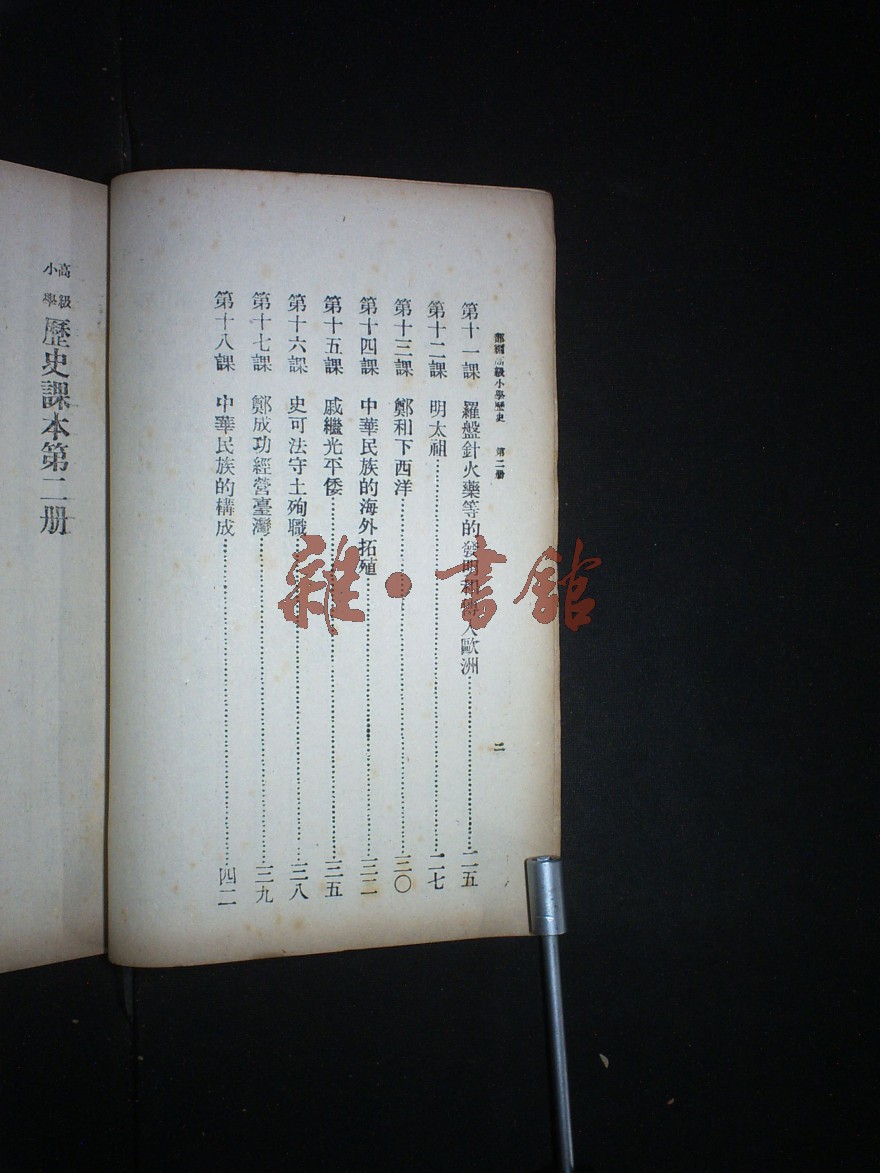 部編高級小學歷史 第二册 二
第十一課 羅盤針火藥等的發明和傳入歐洲 二五
第十二課 明太祖 二七
第十三課 鄭和下西洋 三〇
第十四課 中華民族的海外拓殖 三二
第十五課 戚繼光平倭 三五
第十六課 史可法守土殉職 三八
第十七課 鄭成功經營臺灣 三九
第十八課 中華民族的構成 四二
高級小學 歷史課本第二册
雜·書館